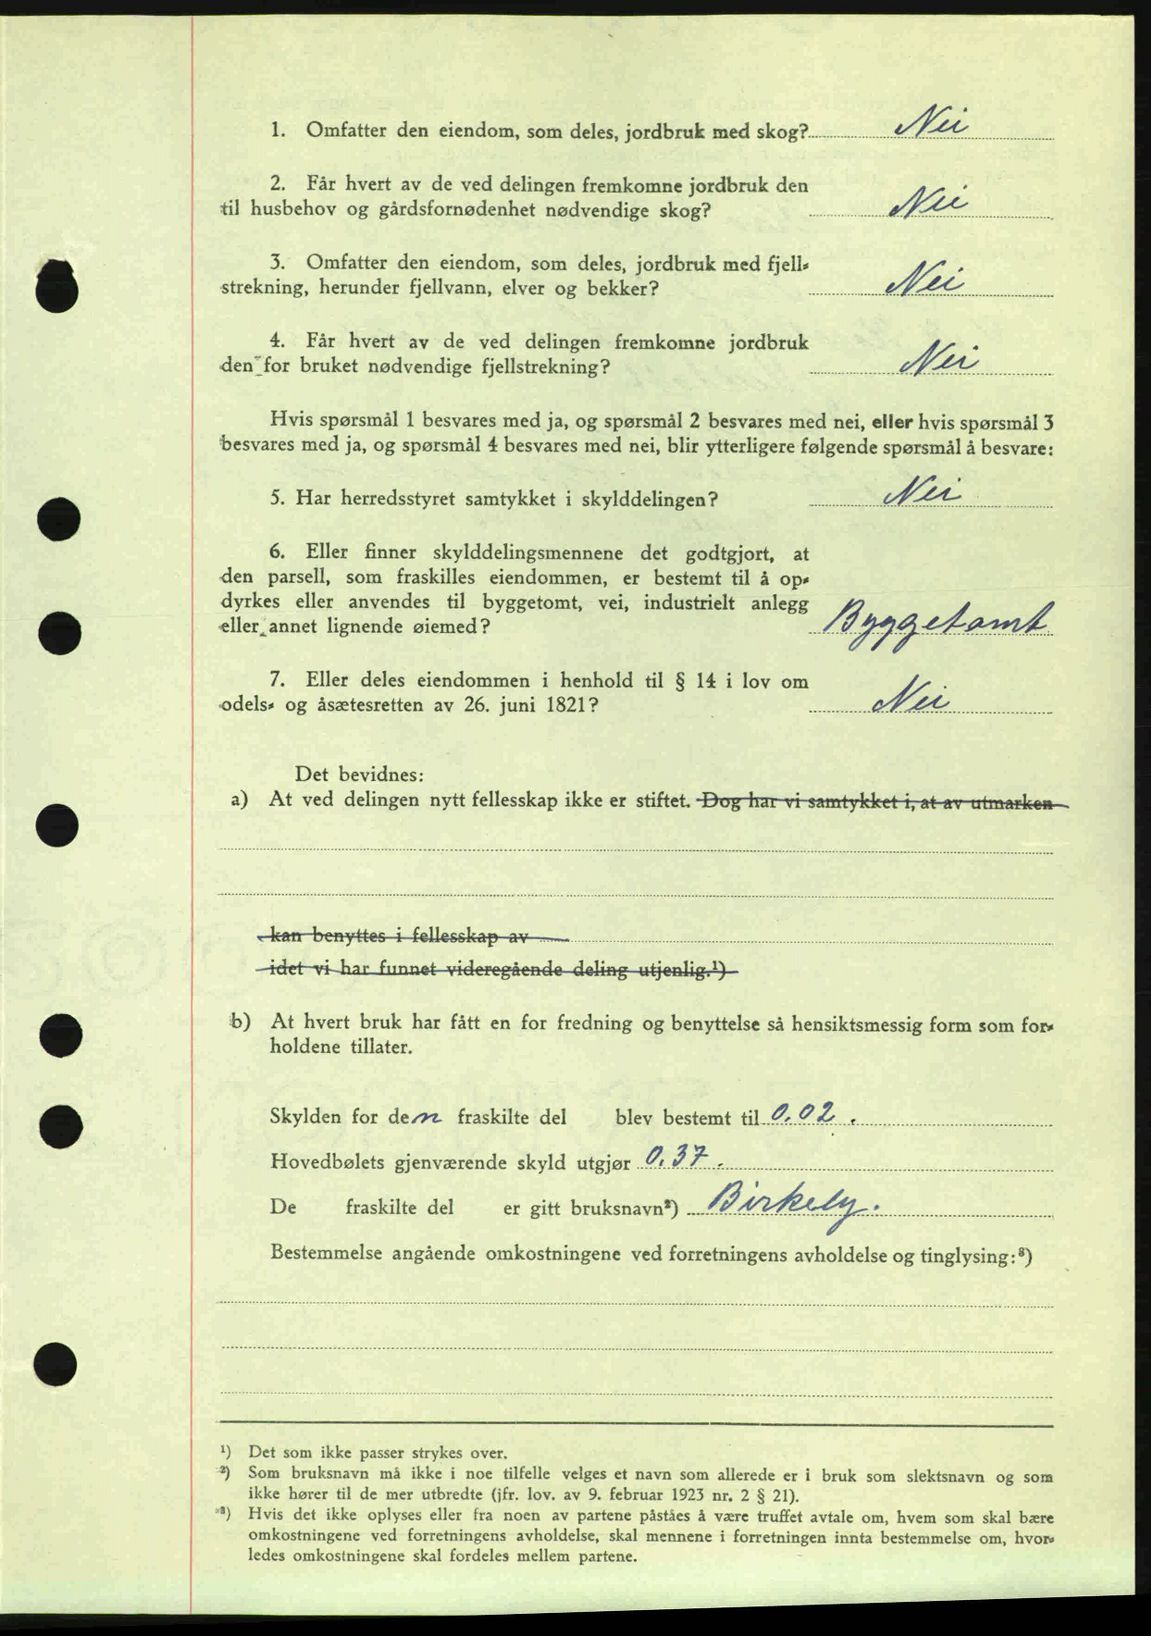 1. Omfatter den eiendom, som deles, jordbruk med skog? Nei
2. Får hvert av de ved delingen fremkomne jordbruk den
til husbehov og gårdsfornødenhet nødvendige skog? Nei
3. Omfatter den eiendom, som deles, jordbruk med fjell-
strekning, herunder fjellvann, elver og bekker? Nei
4. Får hvert av de ved delingen fremkomne jordbruk
den for bruket nødvendige fjellstrekning? Nei
Hvis spørsmål 1 besvares med ja, og spørsmål 2 besvares med nei, eller hvis spørsmål 3
besvares med ja, og spørsmål 4 besvares med nei, blir ytterligere følgende spørsmål å besvare:
5. Har herredsstyret samtykket i skylddelingen? Nei
6. Eller finner skylddelingsmennene det godtgjort, at
den parsell, som fraskilles eiendommen, er bestemt til å op-
dyrkes eller anvendes til byggetomt, vei, industrielt anlegg
eller annet lignende øiemed? Byggetomt
7. Eller deles eiendommen i henhold til § 14 i lov om
odels- og åsætesretten av 26. juni 1821? Nei
Det bevidnes:
a) At ved delingen nytt fellesskap ikke er stiftet. Dog har vi samtykket i, at av utmarken
kan benyttes i fellesskap av
idet vi har funnet videregående deling utjenlig.¹)
b) At hvert bruk har fått en for fredning og benyttelse så hensiktsmessig form som for-
holdene tillater.
Skylden for den fraskilte del blev bestemt til 0.02.
Hovedbølets gjenværende skyld utgjør 0.37.
De fraskilte del er gitt bruksnavn²) Birkely.
Bestemmelse angående omkostningene ved forretningens avholdelse og tinglysing:³)
¹) Det som ikke passer strykes over.
²) Som bruksnavn må ikke i noe tilfelle velges et navn som allerede er i bruk som slektsnavn og som
ikke hører til de mer utbredte (jfr. lov. av 9. februar 1923 nr. 2 § 21).
³) Hvis det ikke oplyses eller fra noen av partene påståes å være truffet avtale om, hvem som skal bære
omkostningene ved forretningens avholdelse, skal mennene i forretningen innta bestemmelse om, hvor-
ledes omkostningene skal fordeles mellem partene.